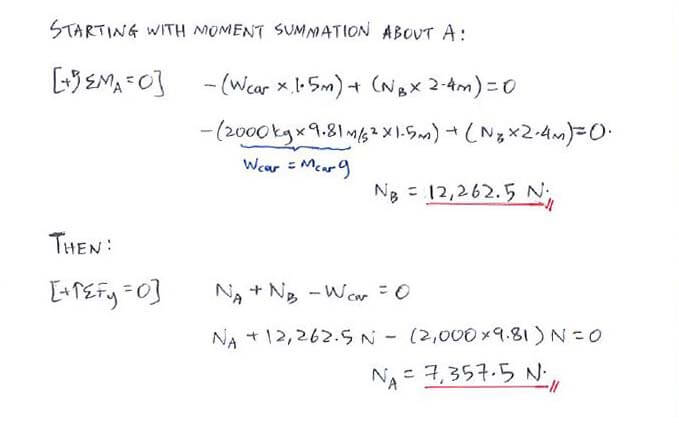 STARTING WITH MOMENT SUMMATION ABOUT A:
[+↺ ΣM_A = 0] -(W_car × 1.5m) + (N_B × 2.4m) = 0
-(2000 kg × 9.81 m/s² × 1.5m) + (N_B × 2.4m) = 0.
W_car = m_car g
N_B = 12,262.5 N.
THEN:
[+↑ΣF_y = 0] N_A + N_B - W_car = 0
N_A + 12,262.5 N - (2,000 × 9.81) N = 0
N_A = 7,357.5 N.